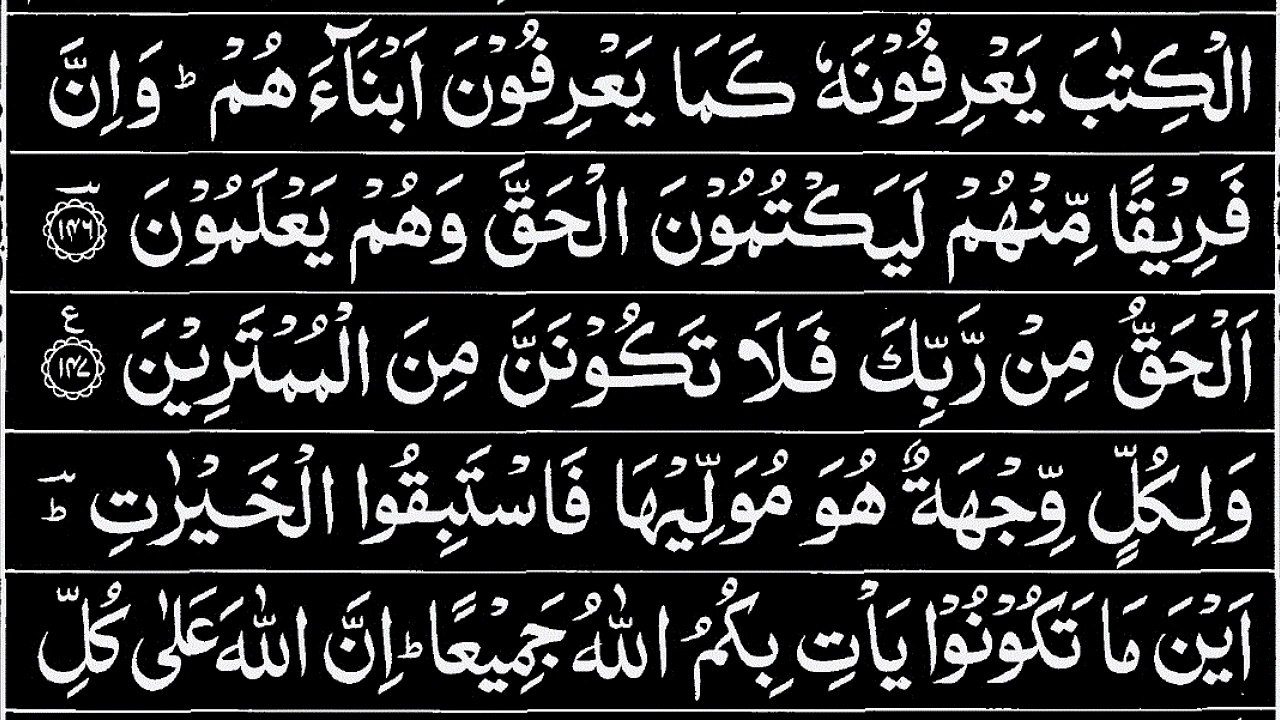 الْكِتٰبَ يَعْرِفُوْنَهٗ كَمَا يَعْرِفُوْنَ اَبْنَآءَهُمْ ؕ وَاِنَّ
فَرِيْقًا مِّنْهُمْ لَيَكْتُمُوْنَ الْحَقَّ وَهُمْ يَعْلَمُوْنَ ﴿۱۴۶﴾
اَلْحَقُّ مِنْ رَّبِّكَ فَلَا تَكُوْنَنَّ مِنَ الْمُمْتَرِيْنَ ﴿۱۴۷﴾ ع
وَلِكُلٍّ وِّجْهَةٌ هُوَ مُوَلِّيْهَا فَاسْتَبِقُوا الْخَيْرٰتِ ؕ
اَيْنَ مَا تَكُوْنُوْا يَاْتِ بِكُمُ اللّٰهُ جَمِيْعًا ؕ اِنَّ اللّٰهَ عَلٰى كُلِّ